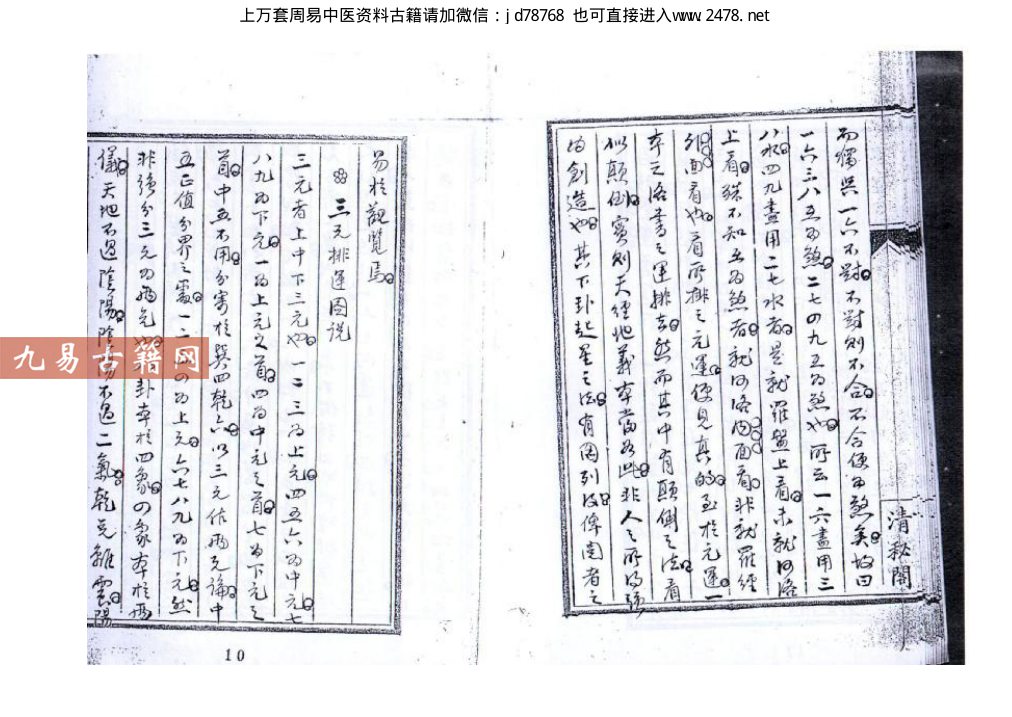 上万套周易中医资料古籍请加微信：jd78768 也可直接进入www.2478.net
而獨與一六不對不對則不合不合便由煞矣故曰
一六三八五為煞二七四九五為煞也所云一六盡用三
八水四九盡用二七水者是就羅盤上看未就河洛
上看殊不知五為煞者就河洛內面看非就羅經
外面看也看所排之元運便見真的至於元運一
卒云洛書之運排去然而其中有顛倒之法看
似顛倒實則天經地義本當如此非人之所為強
為創造也其下卦起星之法有圖列後俾閱者之
清秘閣
易於觀覽焉
三元排運圖說
三元者上中下三元也一二三為上元四五六為中元七
八九為下元一為上元之首四為中元之首七為下元之
首中五不用分寄於巽四乾六以三元作兩元論中
五正值分界之處一二三四為上元六七八九為下元然
非強分三元為兩元也卦本於四象四象本於兩
儀天地不過陰陽陰陽不過二氣乾元雖雲陽
九易古籍网
10